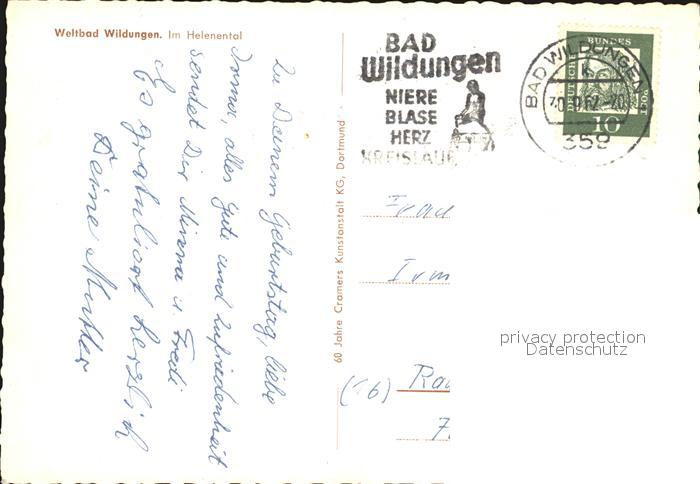 Weltbad Wildungen. Im Helenental
Zu Deinem Geburtstag, liebe
Irma, alles Gute und Zufriedenheit
sendet Dir Minna u. Fredi
Es gratuliert herzlich
Deine Mutter
60 Jahre Cramers Kunstanstalt KG, Dortmund
BAD
Wildungen
NIERE
BLASE
HERZ
KREISLAUF
BAD WILDUNGEN
k
359
DEUTSCHE
BUNDES
POST
10
Frau
Irm
(16) Ra
privacy protection
Datenschutz